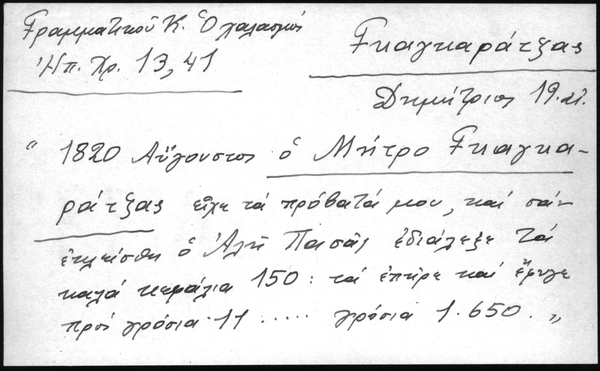 Γραμματικοῦ Κ. Ὁ χαλασμός
Ἠπ. Χρ. 13, 41
Γκαγκαράτζας
Δημήτριος 19. αἰ.
" 1820 Αὔγουστος ὁ Μήτρο Γκαγκα-
ράτζας εἶχε τά πρόβατά μου, καί σάν
ἐκλείσθη ὁ Ἀλῆ Πασᾶς ἐδιάλεξε τά
καλά κεφάλια 150: τά ἐπῆρε καί ἔφυγε
πρός γρόσια 11 ..... γρόσια 1.650. "